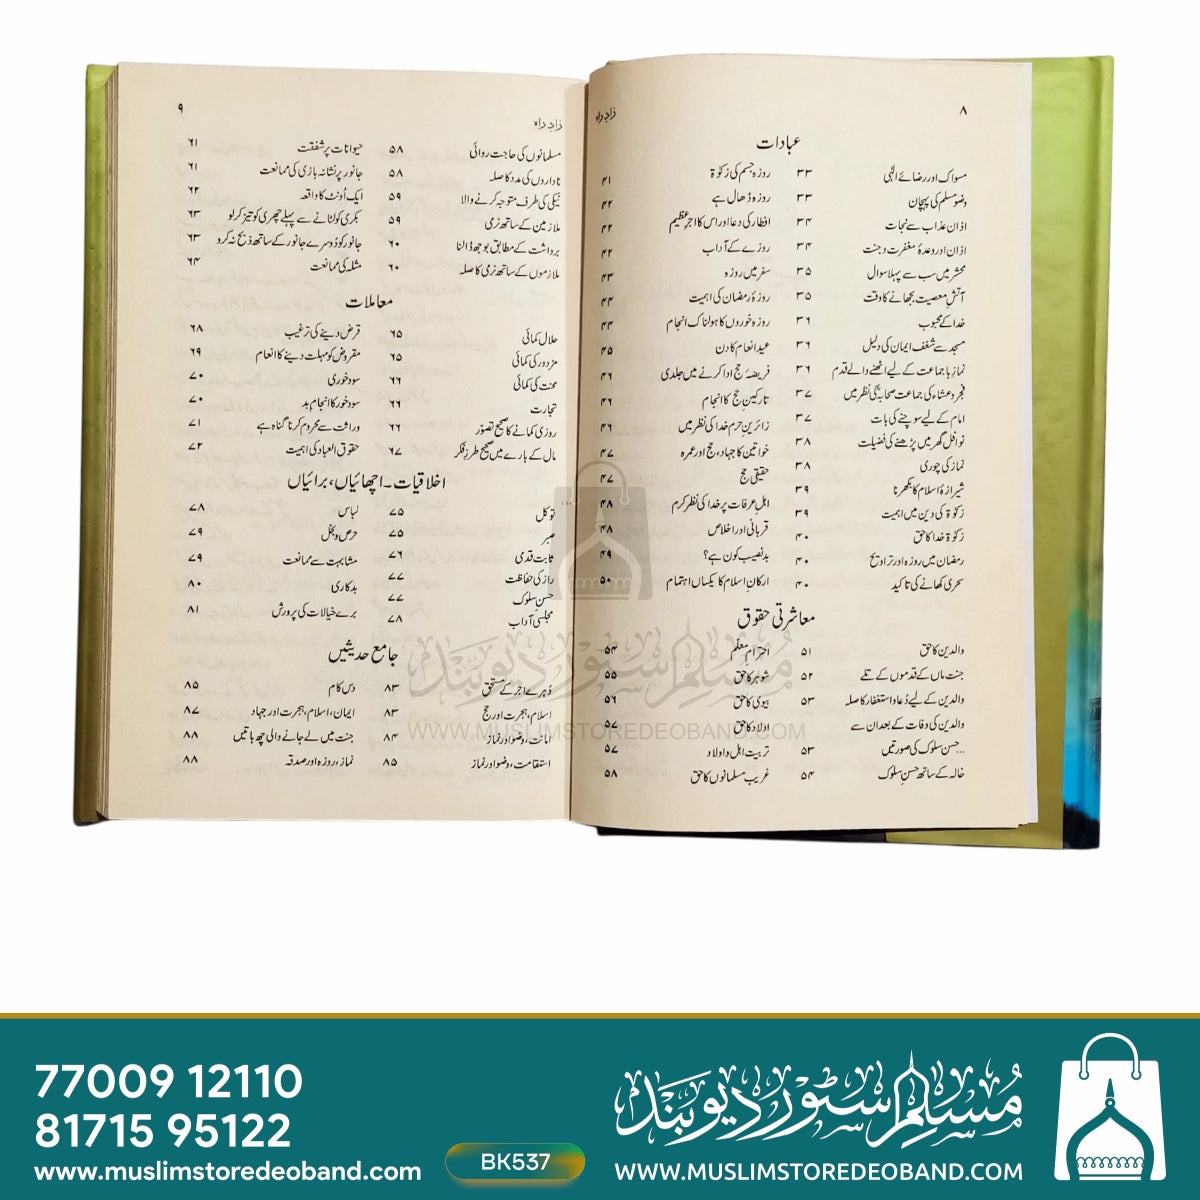 ۸
زادِ راہ
عبادات
مسواک اور رضائے الٰہی ۳۳
وضو مسلم کی پہچان ۳۳
اذان عذاب سے نجات ۳۴
اذان اور وعدۂ مغفرت و جنت ۳۴
محشر میں سب سے پہلا سوال ۳۵
آتشِ معصیت بجھانے کا وقت ۳۵
خدا کے محبوب ۳۶
مسجد سے شغف ایمان کی دلیل ۳۶
نماز باجماعت کے لیے اٹھنے والے قدم ۳۶
فجر و عشاء کی جماعت صحابہؓ کی نظر میں ۳۷
امام کے لیے سوچنے کی بات ۳۷
نوافل گھر میں پڑھنے کی فضیلت ۳۸
نماز کی چوری ۳۸
شیرازۂ اسلام کا بکھرنا ۳۹
زکوٰۃ کی دین میں اہمیت ۳۹
زکوٰۃ خدا کا حق ۴۰
رمضان میں روزہ اور تراویح ۴۰
سحری کھانے کی تاکید ۴۰
روزہ جسم کی زکوٰۃ ۴۱
روزہ ڈھال ہے ۴۲
افطار کی دعا اور اس کا اجرِ عظیم ۴۲
روزے کے آداب ۴۲
سفر میں روزہ ۴۳
روزۂ رمضان کی اہمیت ۴۴
روزہ خوروں کا ہولناک انجام ۴۴
عید انعام کا دن ۴۵
فریضۂ حج ادا کرنے میں جلدی ۴۶
تارکینِ حج کا انجام ۴۶
زائرینِ حرم خدا کی نظر میں ۴۶
خواتین کا جہاد، حج اور عمرہ ۴۷
حقیقی حج ۴۷
اہلِ عرفات پر خدا کی نظرِ کرم ۴۸
قربانی اور اخلاص ۴۸
بدنصیب کون ہے؟ ۴۹
ارکانِ اسلام کا یکساں اہتمام ۵۰
معاشرتی حقوق
والدین کا حق ۵۱
جنت ماں کے قدموں کے تلے ۵۲
والدین کے لیے دُعا و استغفار کا صلہ ۵۳
والدین کی وفات کے بعد ان سے
...حسن سلوک کی صورتیں ۵۳
خالہ کے ساتھ حسنِ سلوک ۵۴
احترامِ معلّم ۵۴
شوہر کا حق ۵۵
بیوی کا حق ۵۶
اولاد کا حق ۵۷
تربیت اہل و اولاد ۵۷
غریب مسلمانوں کا حق ۵۸
۹
زادِ راہ
مسلمانوں کی حاجت روائی ۵۸
ناداروں کی مدد کا صلہ ۵۸
نیکی کی طرف متوجہ کرنے والا ۵۹
ملازمین کے ساتھ نرمی ۵۹
برداشت کے مطابق بوجھ ڈالنا ۶۰
ملازموں کے ساتھ نرمی کا صلہ ۶۰
حیوانات پر شفقت ۶۱
جانور پر نشانہ بازی کی ممانعت ۶۱
ایک اُونٹ کا واقعہ ۶۲
بکری کو لٹانے سے پہلے چھری کو تیز کر لو ۶۳
جانور کو دُوسرے جانور کے ساتھ ذبح نہ کرو ۶۳
مثلہ کی ممانعت ۶۴
معاملات
حلال کمائی ۶۵
مزدور کی کمائی ۶۵
محنت کی کمائی ۶۶
تجارت ۶۶
روزی کمانے کا صحیح تصوّر ۶۶
مال کے بارے میں صحیح طرزِ فکر ۶۷
قرض دینے کی ترغیب ۶۸
مقروض کو مہلت دینے کا انعام ۶۹
سود خوری ۷۰
سود خور کا انجامِ بد ۷۰
وراثت سے محروم کرنا گناہ ہے ۷۱
حقوق العباد کی اہمیت ۷۲
اخلاقیات - اچھائیاں، برائیاں
توکل ۷۵
صبر ۷۵
ثابت قدمی ۷۶
راز کی حفاظت ۷۷
حسنِ سلوک ۷۷
مجلسی آداب ۷۸
لباس ۷۸
حرص و بخل ۷۹
مشابہت سے ممانعت ۷۹
بدکاری ۸۰
برے خیالات کی پرورش ۸۱
جامع حدیثیں
دُہرے اجر کے مستحق ۸۳
اسلام، ہجرت اور حج ۸۳
امانت، وضو اور نماز ۸۴
استقامت، وضو اور نماز ۸۵
دس کام ۸۵
ایمان، اسلام، ہجرت اور جہاد ۸۷
جنت میں لے جانے والی چھ باتیں ۸۸
نماز، روزہ اور صدقہ ۸۸
مسلم سٹور دیوبند
WWW.MUSLIMSTOREDEOBAND.COM
77009 12110
81715 95122
www.muslimstoredeoband.com
BK537
مسلم سٹور دیوبند
WWW.MUSLIMSTOREDEOBAND.COM